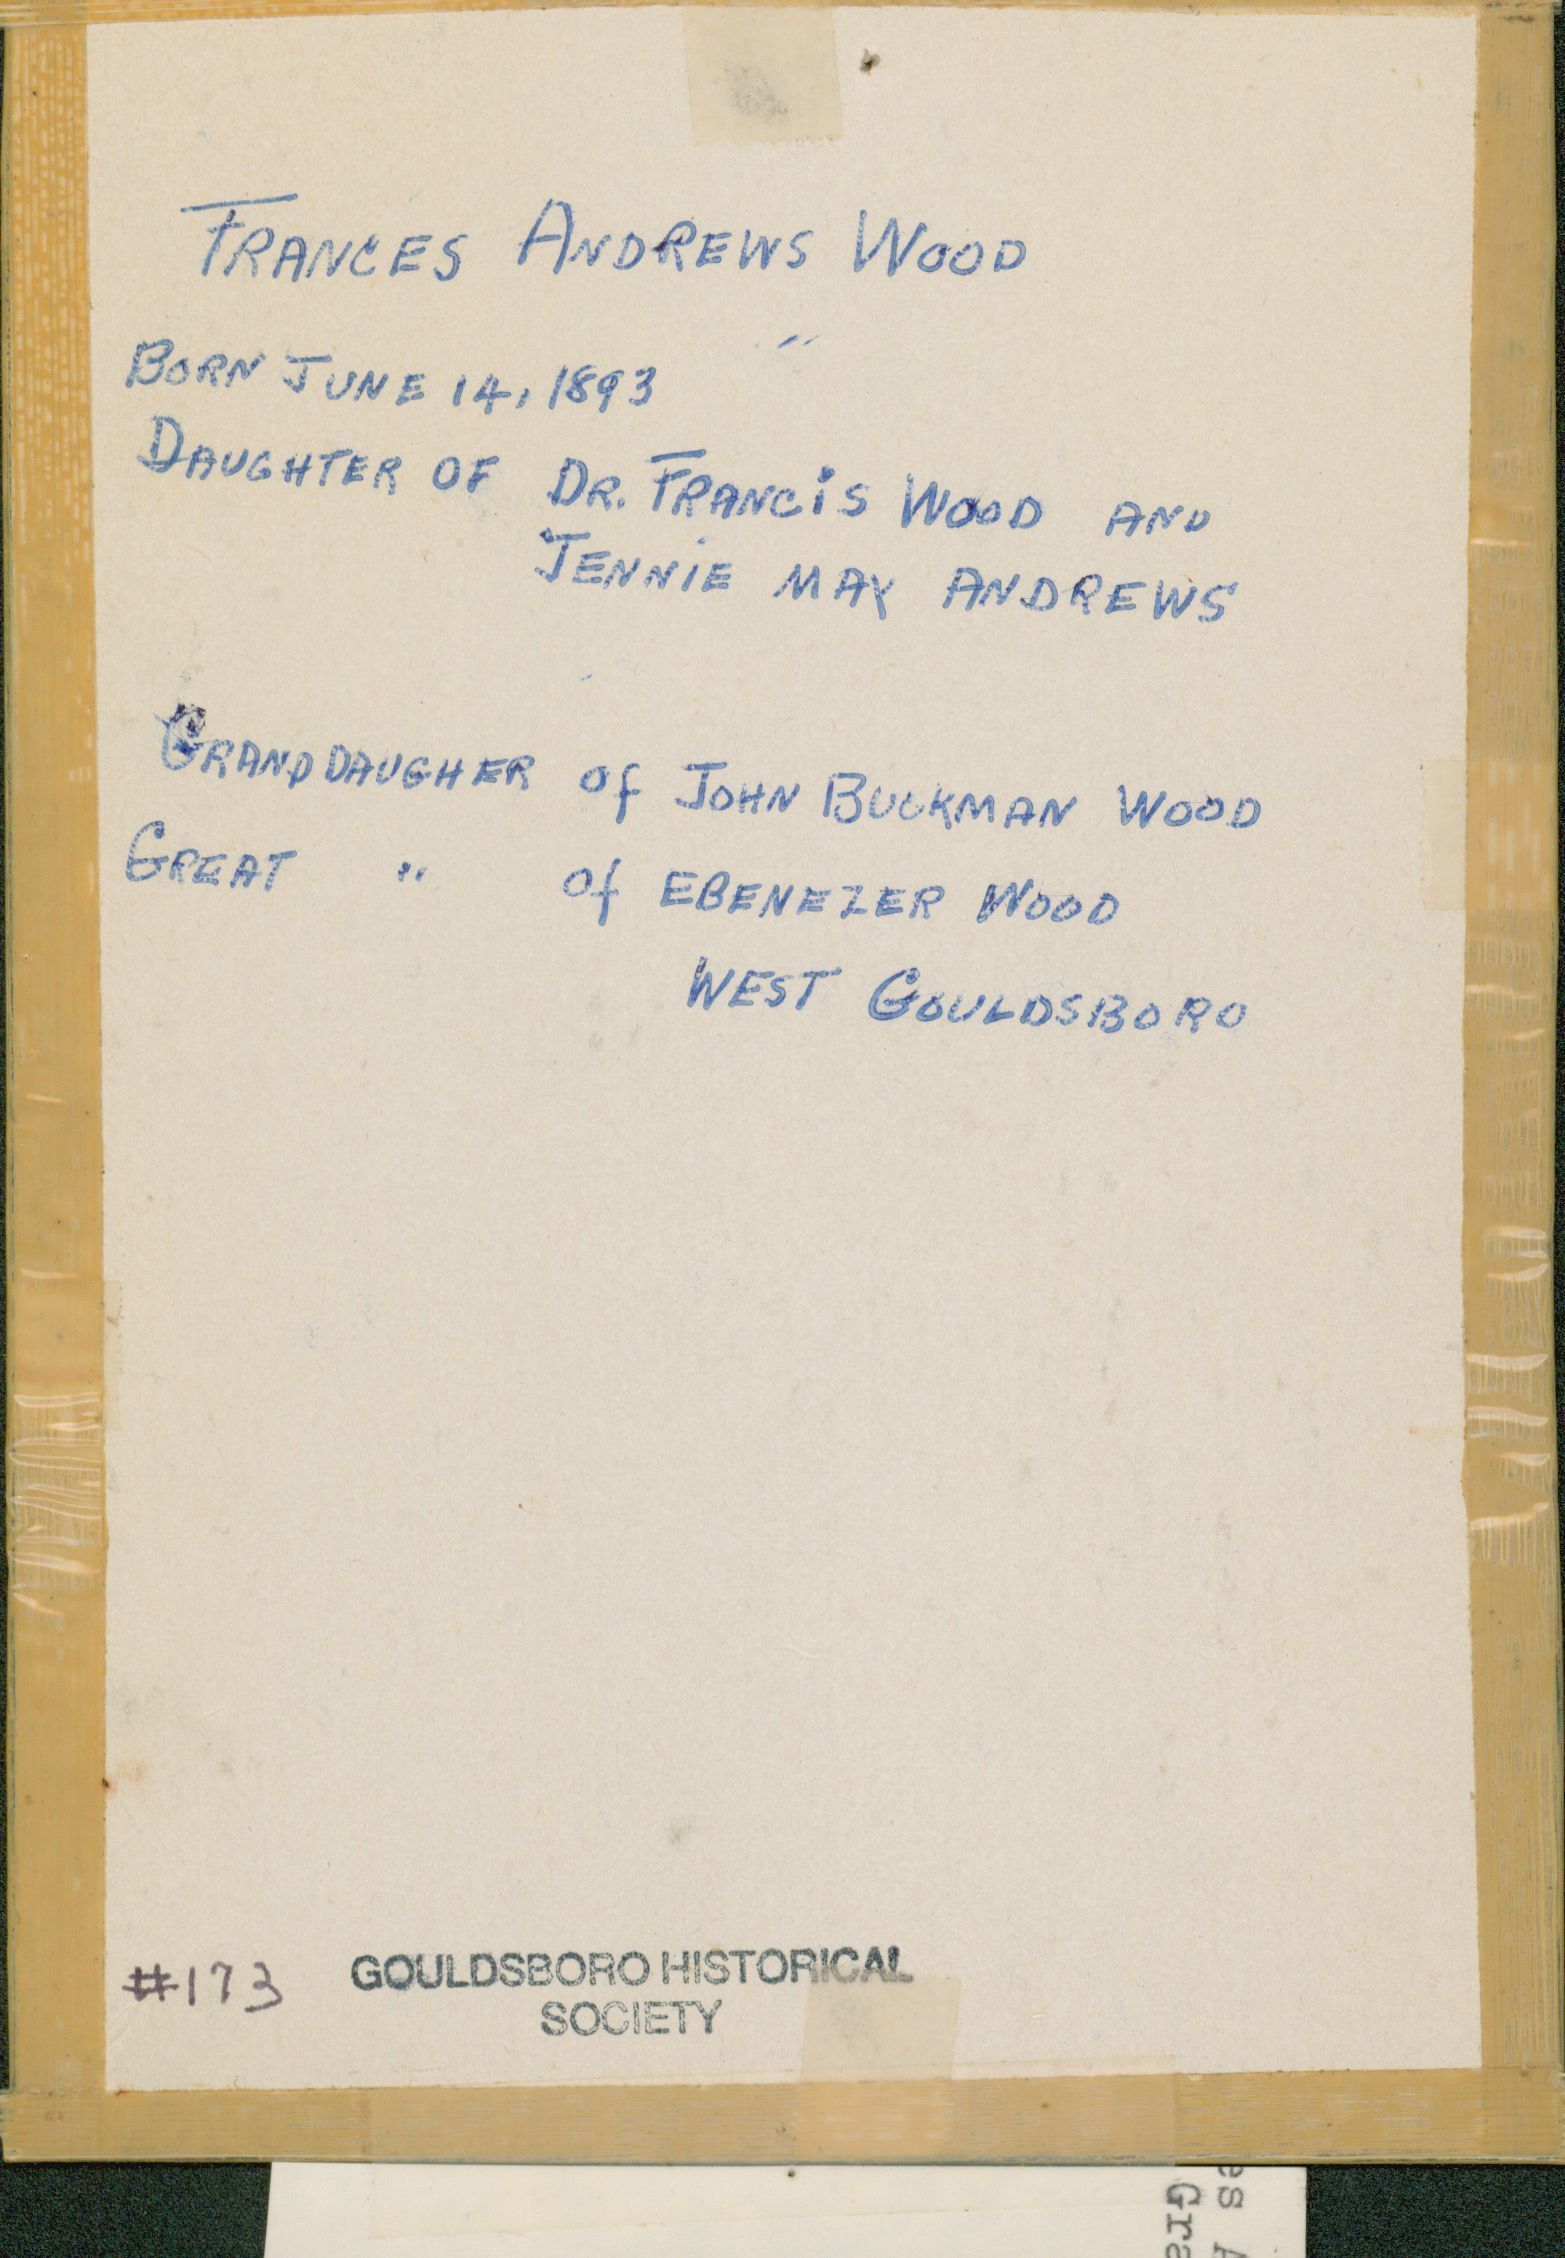 FRANCES ANDREWS WOOD
BORN JUNE 14, 1893
DAUGHTER OF DR. FRANCIS WOOD AND
JENNIE MAY ANDREWS
GRANDDAUGHER of JOHN BUCKMAN WOOD
GREAT " of EBENEZER WOOD
WEST GOULDSBORO
#173 GOULDSBORO HISTORICAL
SOCIETY
es A
Gra